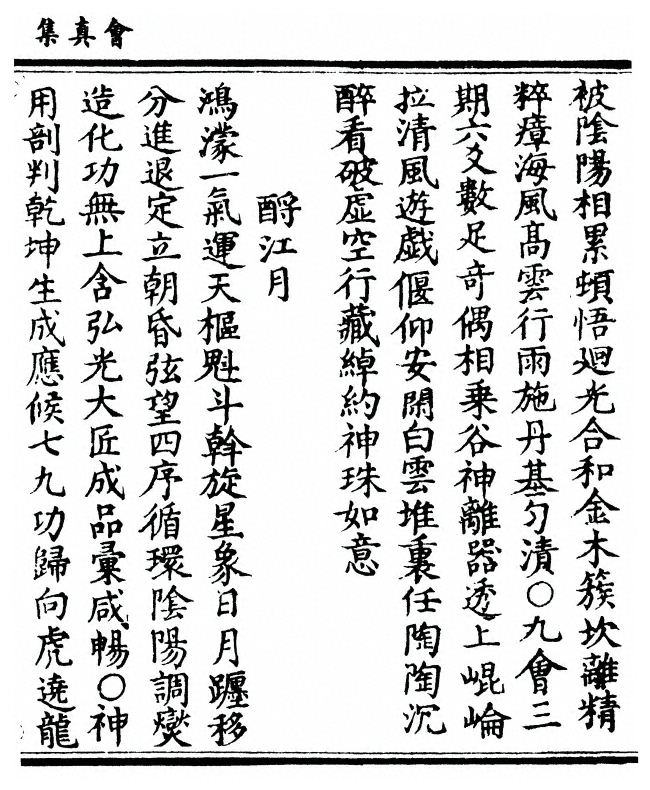 會真集
被陰陽相累頓悟廻光合和金木簇坎離精
粹瘴海風髙雲行雨施丹基勻漬○九會三
期六爻數足奇偶相乗谷神離器透上崐崘
拉清風遊戯偃仰安閑白雲堆裏任陶陶沉
醉看破虛空行藏綽約神珠如意
酹江月
鴻濛一氣運天樞魁斗斡旋星象日月躔移
分進退定立朝昏弦望四序循環陰陽調爕
造化功無上含弘光大匠成品彙咸暢○神
用剖判乾坤生成應候七九功歸向虎遶龍